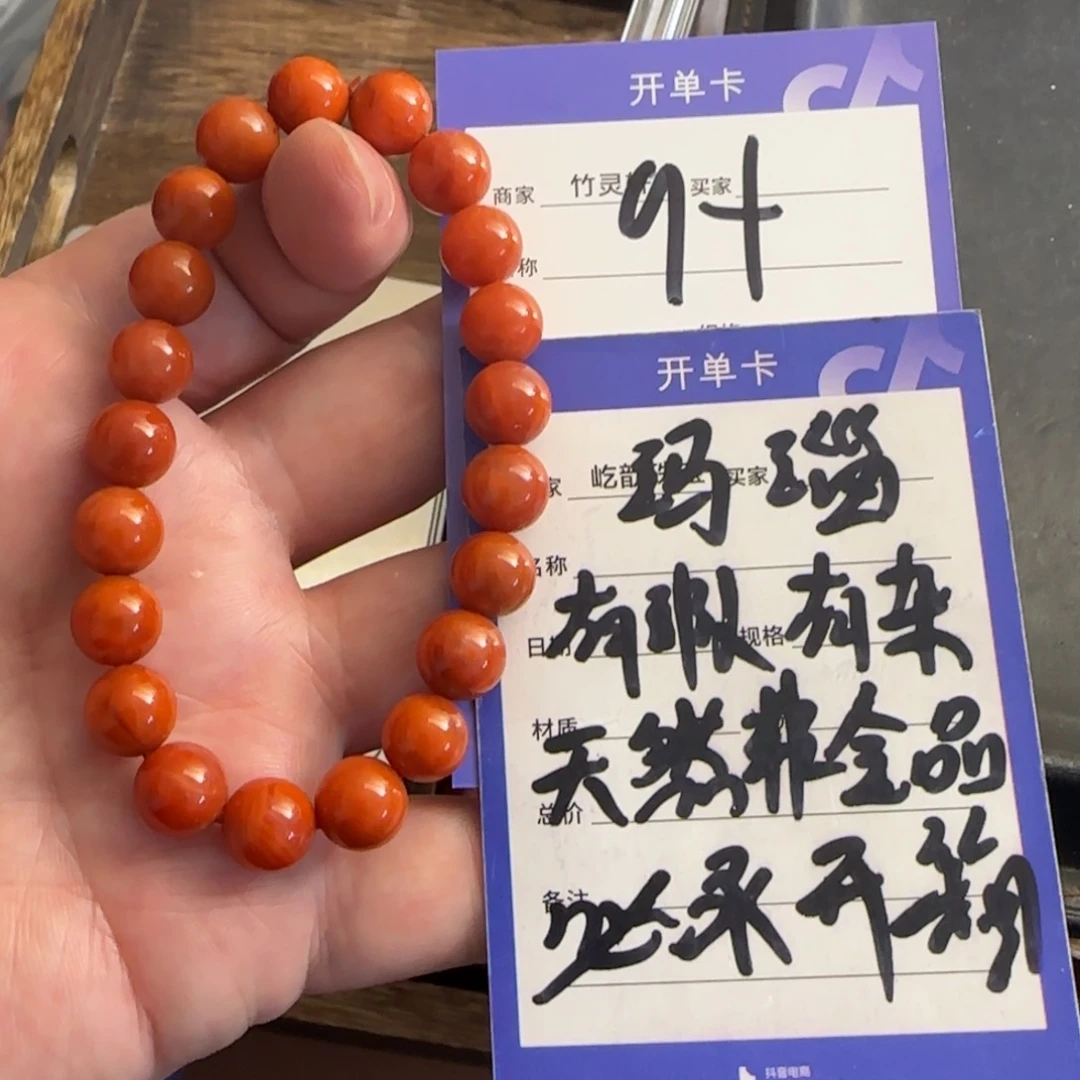 开单卡
商家 竹灵 买家
称
9十
开单卡
家 屹韵 买家
玛瑙
名称
有瑕有杂
日期 规格
材质
天然非全品
总价
必录开箱
备注
抖音电商